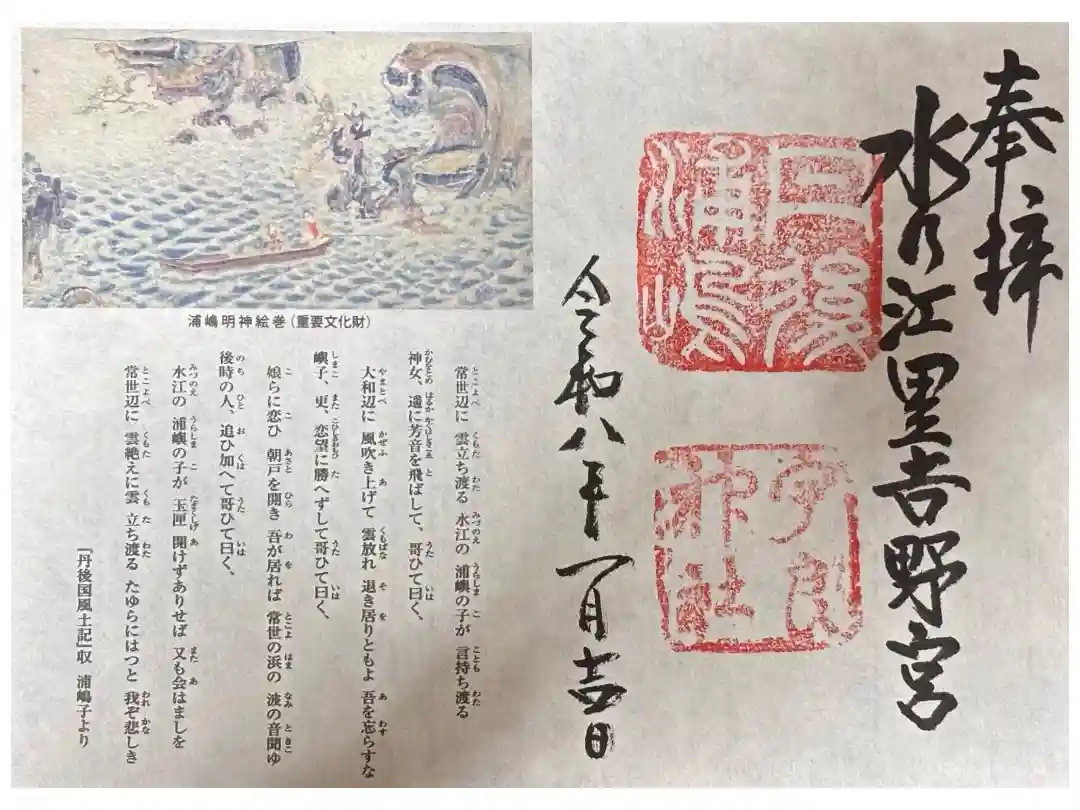 奉拝
水乃江里吉野宮
丹後
浦嶋
宇良
神社
令和八年一月吉日
浦嶋明神絵巻(重要文化財)
常世辺に 雲立ち渡る 水江の 浦嶼の子が 言持ち渡る
神女、遥に芳音を飛ばして、哥ひて曰く、
大和辺に 風吹き上げて 雲放れ 退き居りともよ 吾を忘らすな
嶼子、更、恋望に勝へずして哥ひて曰く、
娘らに恋ひ 朝戸を開き 吾が居れば 常世の浜の 波の音聞ゆ
後時の人、追ひ加へて哥ひて曰く、
水江の 浦嶼の子が 玉匣 開けずありせば 又も会はましを
常世辺に 雲絶えに雲 立ち渡る たゆらにはつと 我ぞ悲しき
『丹後国風土記』収 浦嶋子より